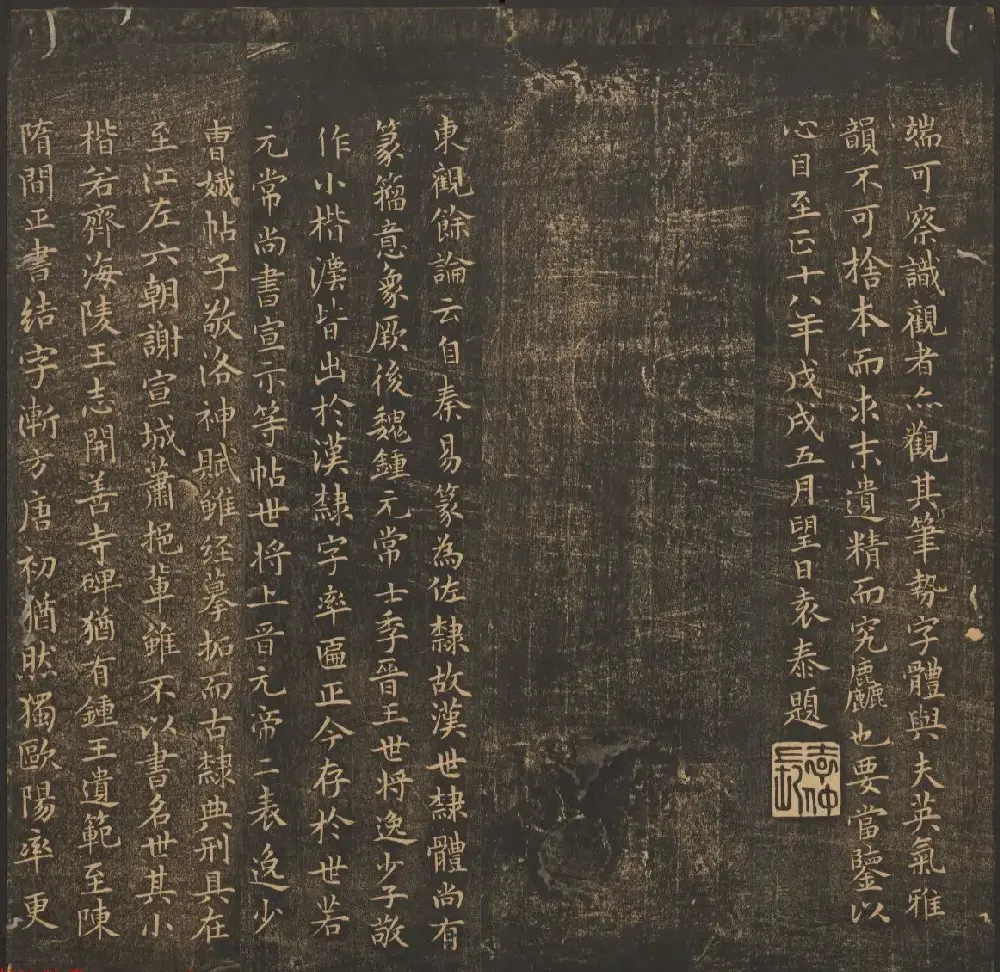 端可察識觀者亦觀其筆勢字體與夫英氣雅
韻不可捨本而求末遺精而究麤也要當鑒以
心目至正十八年戊戌五月望日袁泰題
袁仲長
東觀餘論云自秦易篆為佐隸故漢世隸體尚有
篆籀意象厥後魏鍾元常士季晉王世將逸少子敬
作小楷灋皆出於漢隸字率匾正今存於世若
元常尚書宣示等帖世將上晉元帝二表逸少
曹娥帖子敬洛神賦雖經摹拓而古隸典刑具在
至江左六朝謝宣城蕭挹輩雖不以書名世其小
楷若齊海陵王志開善寺碑猶有鍾王遺範至陳
隋間正書結字漸方唐初猶然獨歐陽率更